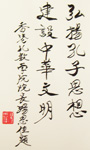 弘揚孔子思想
建設中華文明
香港孔教學院院長湯恩佳題